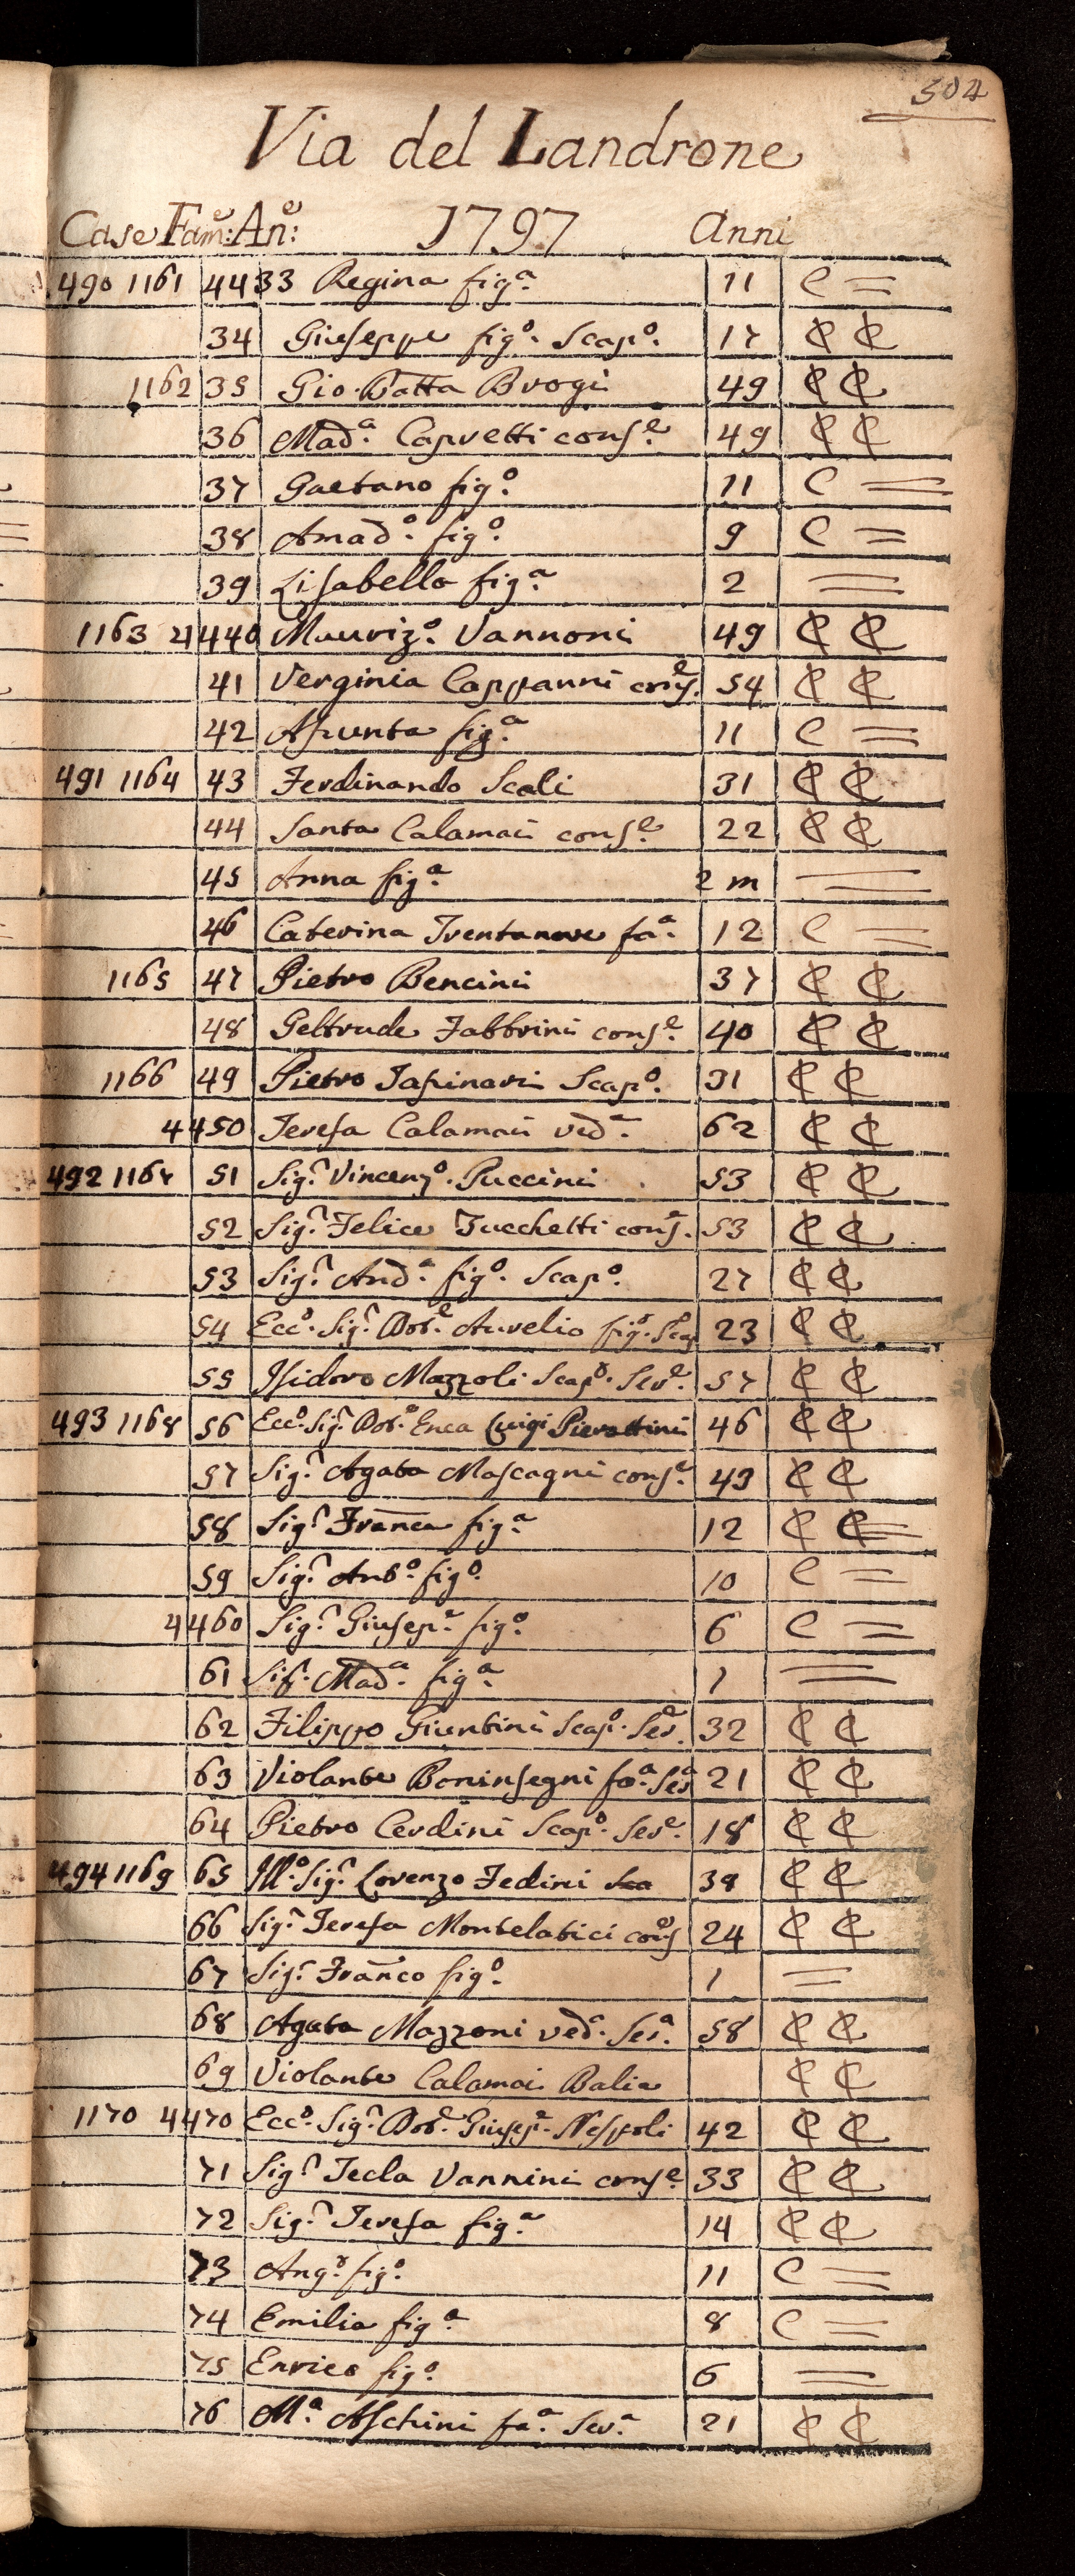 504
Via del Landrone
Case Fam:e An:e 1797 Anni
490 1161 4433 Regina fig.a 11 C =
34 Giuseppe fig.o Scap.o 17 ₵ ₵
1162 35 Gio. Batta Brogi 49 ₵ ₵
36 Mad.a Capretti cons.e 49 ₵ ₵
37 Gaetano fig.o 11 C =
38 Amad.o fig.o 9 C =
39 Lisabella fig.a 2 =
1163 4440 Mauriz.o Vannoni 49 ₵ ₵
41 Verginia Cappanni cons.e 54 ₵ ₵
42 Asunta fig.a 11 C =
491 1164 43 Ferdinando Scali 31 ₵ ₵
44 Santa Calamai cons.e 22 ₵ ₵
45 Anna fig.a 2 m =
46 Caterina Trentanove fa.a 12 C =
1165 47 Pietro Bencini 37 ₵ ₵
48 Geltrude Fabbrini cons.e 40 ₵ ₵
1166 49 Pietro Tapinari Scap.o 31 ₵ ₵
4450 Teresa Calamai ved.a 62 ₵ ₵
492 1167 51 Sig.r Vincenz.o Puccini 53 ₵ ₵
52 Sig.r Felice Tucchetti cons.e 53 ₵ ₵
53 Sig.r And.a fig.o Scap.o 27 ₵ ₵
54 Ecc.o Sig.r Dot.e Aurelio fig.o Scap 23 ₵ ₵
55 Isidoro Mazzoli Scap.o Ser.e 57 ₵ ₵
493 1168 56 Ecc.o Sig.r Dot.e Enea Luigi Pierottini 46 ₵ ₵
57 Sig.r Agata Mascagni cons.e 43 ₵ ₵
58 Sig.r Franca fig.a 12 ₵ ₵
59 Sig.r Ant.o fig.o 10 C =
4460 Sig.r Giusep.e fig.o 6 C =
61 Sig.r Mad.a fig.a 1 =
62 Filippo Giuntini Scap.o Ser.e 32 ₵ ₵
63 Violante Boninsegni fa.a Ser.a 21 ₵ ₵
64 Pietro Cerdini Scap.o Ser.e 18 ₵ ₵
494 1169 65 Ill.o Sig.r Lorenzo Fedini 39 ₵ ₵
66 Sig.r Teresa Montelatici cons.e 24 ₵ ₵
67 Sig.r Franco fig.o 1 =
68 Agata Mazzoni ved.a Ser.a 58 ₵ ₵
69 Violante Calamai Balia ₵ ₵
1170 4470 Ecc.o Sig.r Dot.e Giusep.e Nespoli 42 ₵ ₵
71 Sig.r Tecla Vannini cons.e 33 ₵ ₵
72 Sig.r Teresa fig.a 14 ₵ ₵
73 Ang.o fig.o 11 C =
74 Emilia fig.a 8 C =
75 Enrico fig.o 6 =
76 M.a Aschini fa.a Ser.a 21 ₵ ₵